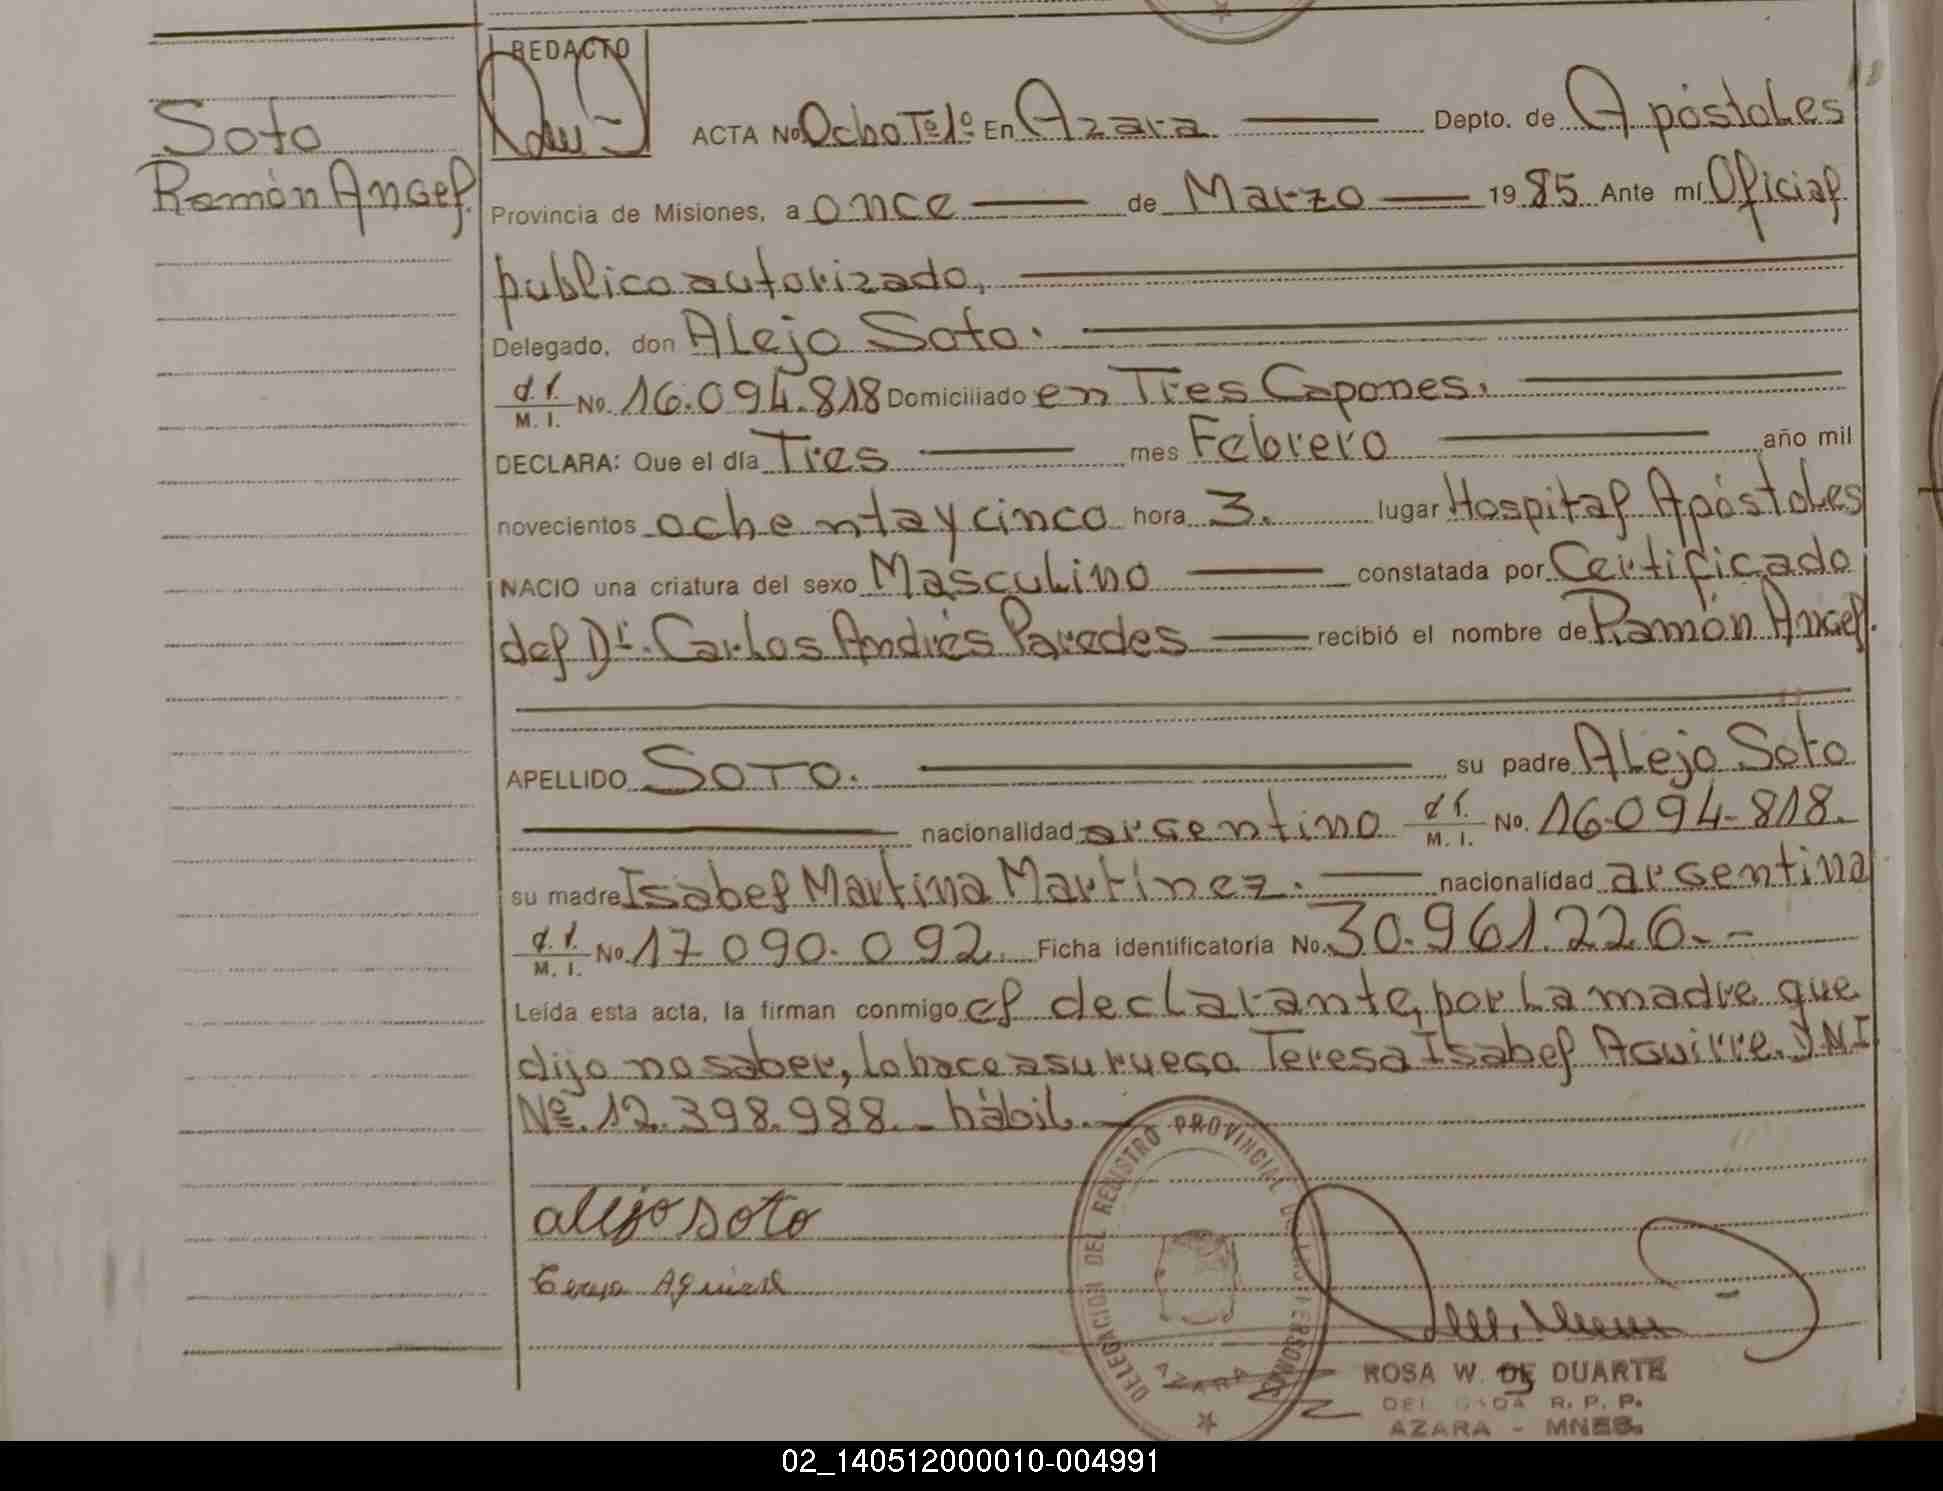 REDACTO
Soto
Ramón Angel.
ACTA No Ocho Tº1º En Azara Depto. de Apóstoles
Provincia de Misiones, a once de Marzo 1985 Ante mí Oficial
publico autorizado,
Delegado, don Alejo Soto.
d.i. M. I. No. 16.094.818 Domiciliado en Tres Capones.
DECLARA: Que el día Tres mes Febrero año mil
novecientos ochenta y cinco hora 3. lugar Hospital Apóstoles
NACIO una criatura del sexo Masculino constatada por Certificado
del Dr. Carlos Andrés Paredes recibió el nombre de Ramón Angel.
APELLIDO SOTO. su padre Alejo Soto
nacionalidad argentino d.i. M. I. No. 16.094.818.
su madre Isabel Martina Martínez. nacionalidad argentina
d.i. M. I. No 17.090.092. Ficha identificatoria No. 30.961.226.--
Leída esta acta, la firman conmigo el declarante, por la madre que
dijo no saber, lo hace a su ruego Teresa Isabel Aguirre. D.N.I
Nº. 12.398.988.- hábil.
alejo soto
DELEGACION DEL REGISTRO PROVINCIAL DE LAS PERSONAS
AZARA
ROSA W. DE DUARTE
DELEGADA R. P. P.
AZARA - MNES.
02_140512000010-004991